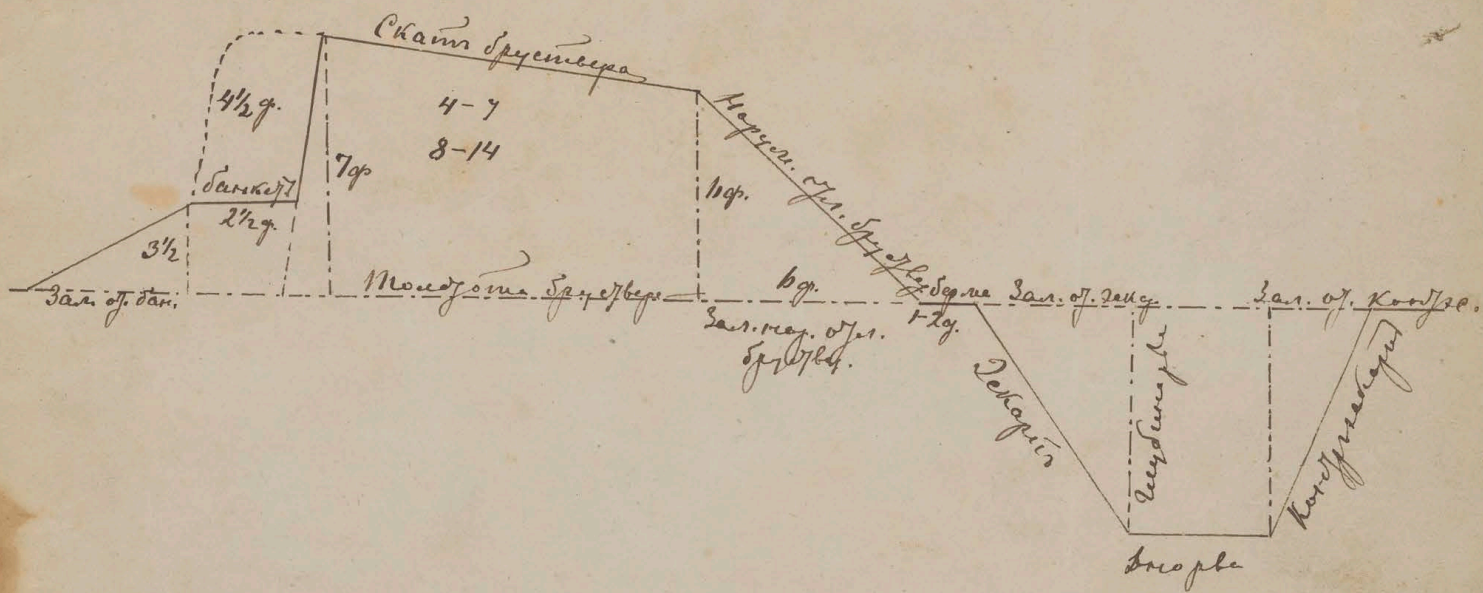 Скатъ бруствера
4½ ф.
4-7
8-14
7ф
банкетъ
2½ ф.
3½
6ф.
Наруж. отл. бруствер
Зал. от. бан.
Толстота бруствера
6ф.
Зал. нар. отл.
бруствер.
берма
1-2ф.
Зал. от. эск.
Зал. от. контрэс.
Эскарпъ
Глубина рва
Контръэскарпъ
Дно рва